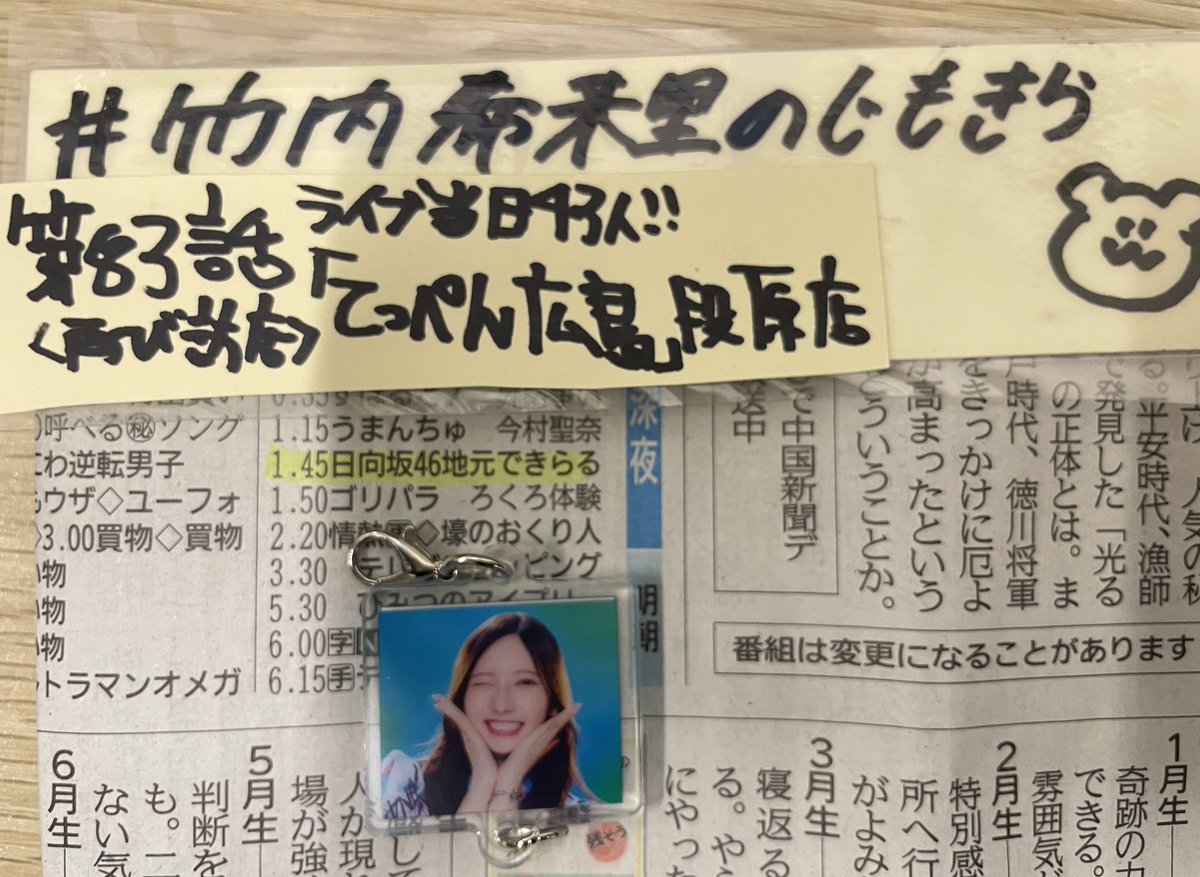 #竹内希来里のじもきら
第83話
<再び訪店>
ライブ当日43人!!
「てっぺん広島」段原店
呼べる㊙ソング
わ逆転男子
ウザ◇ユーフォ
3.00買物◇買物
い物
い物
い物
トラマンオメガ
1.15うまんちゅ 今村聖奈
1.45日向坂46地元できらる
1.50ゴリパラ ろくろ体験
2.20情熱 ◇壕のおくり人
3.30 テレ ッピング
5.30 ひみつのアイプリ
6.00字
6.15手テ
深夜
明朝
で中国新聞デ
送中
人気の秘
る。平安時代、漁師
で発見した「光る
の正体とは。ま
戸時代、徳川将軍
をきっかけに厄よ
が高まったという
どういうことか。
番組は変更になることがあります
1月生
奇跡の力
できる。
雰囲気が
2月生
特別感
所へ行
がよみ
3月生
寝返る
る。やら
にやった
して
人が現れ
場が強
5月生
判断を
も。二
ない気
6月生
残そう